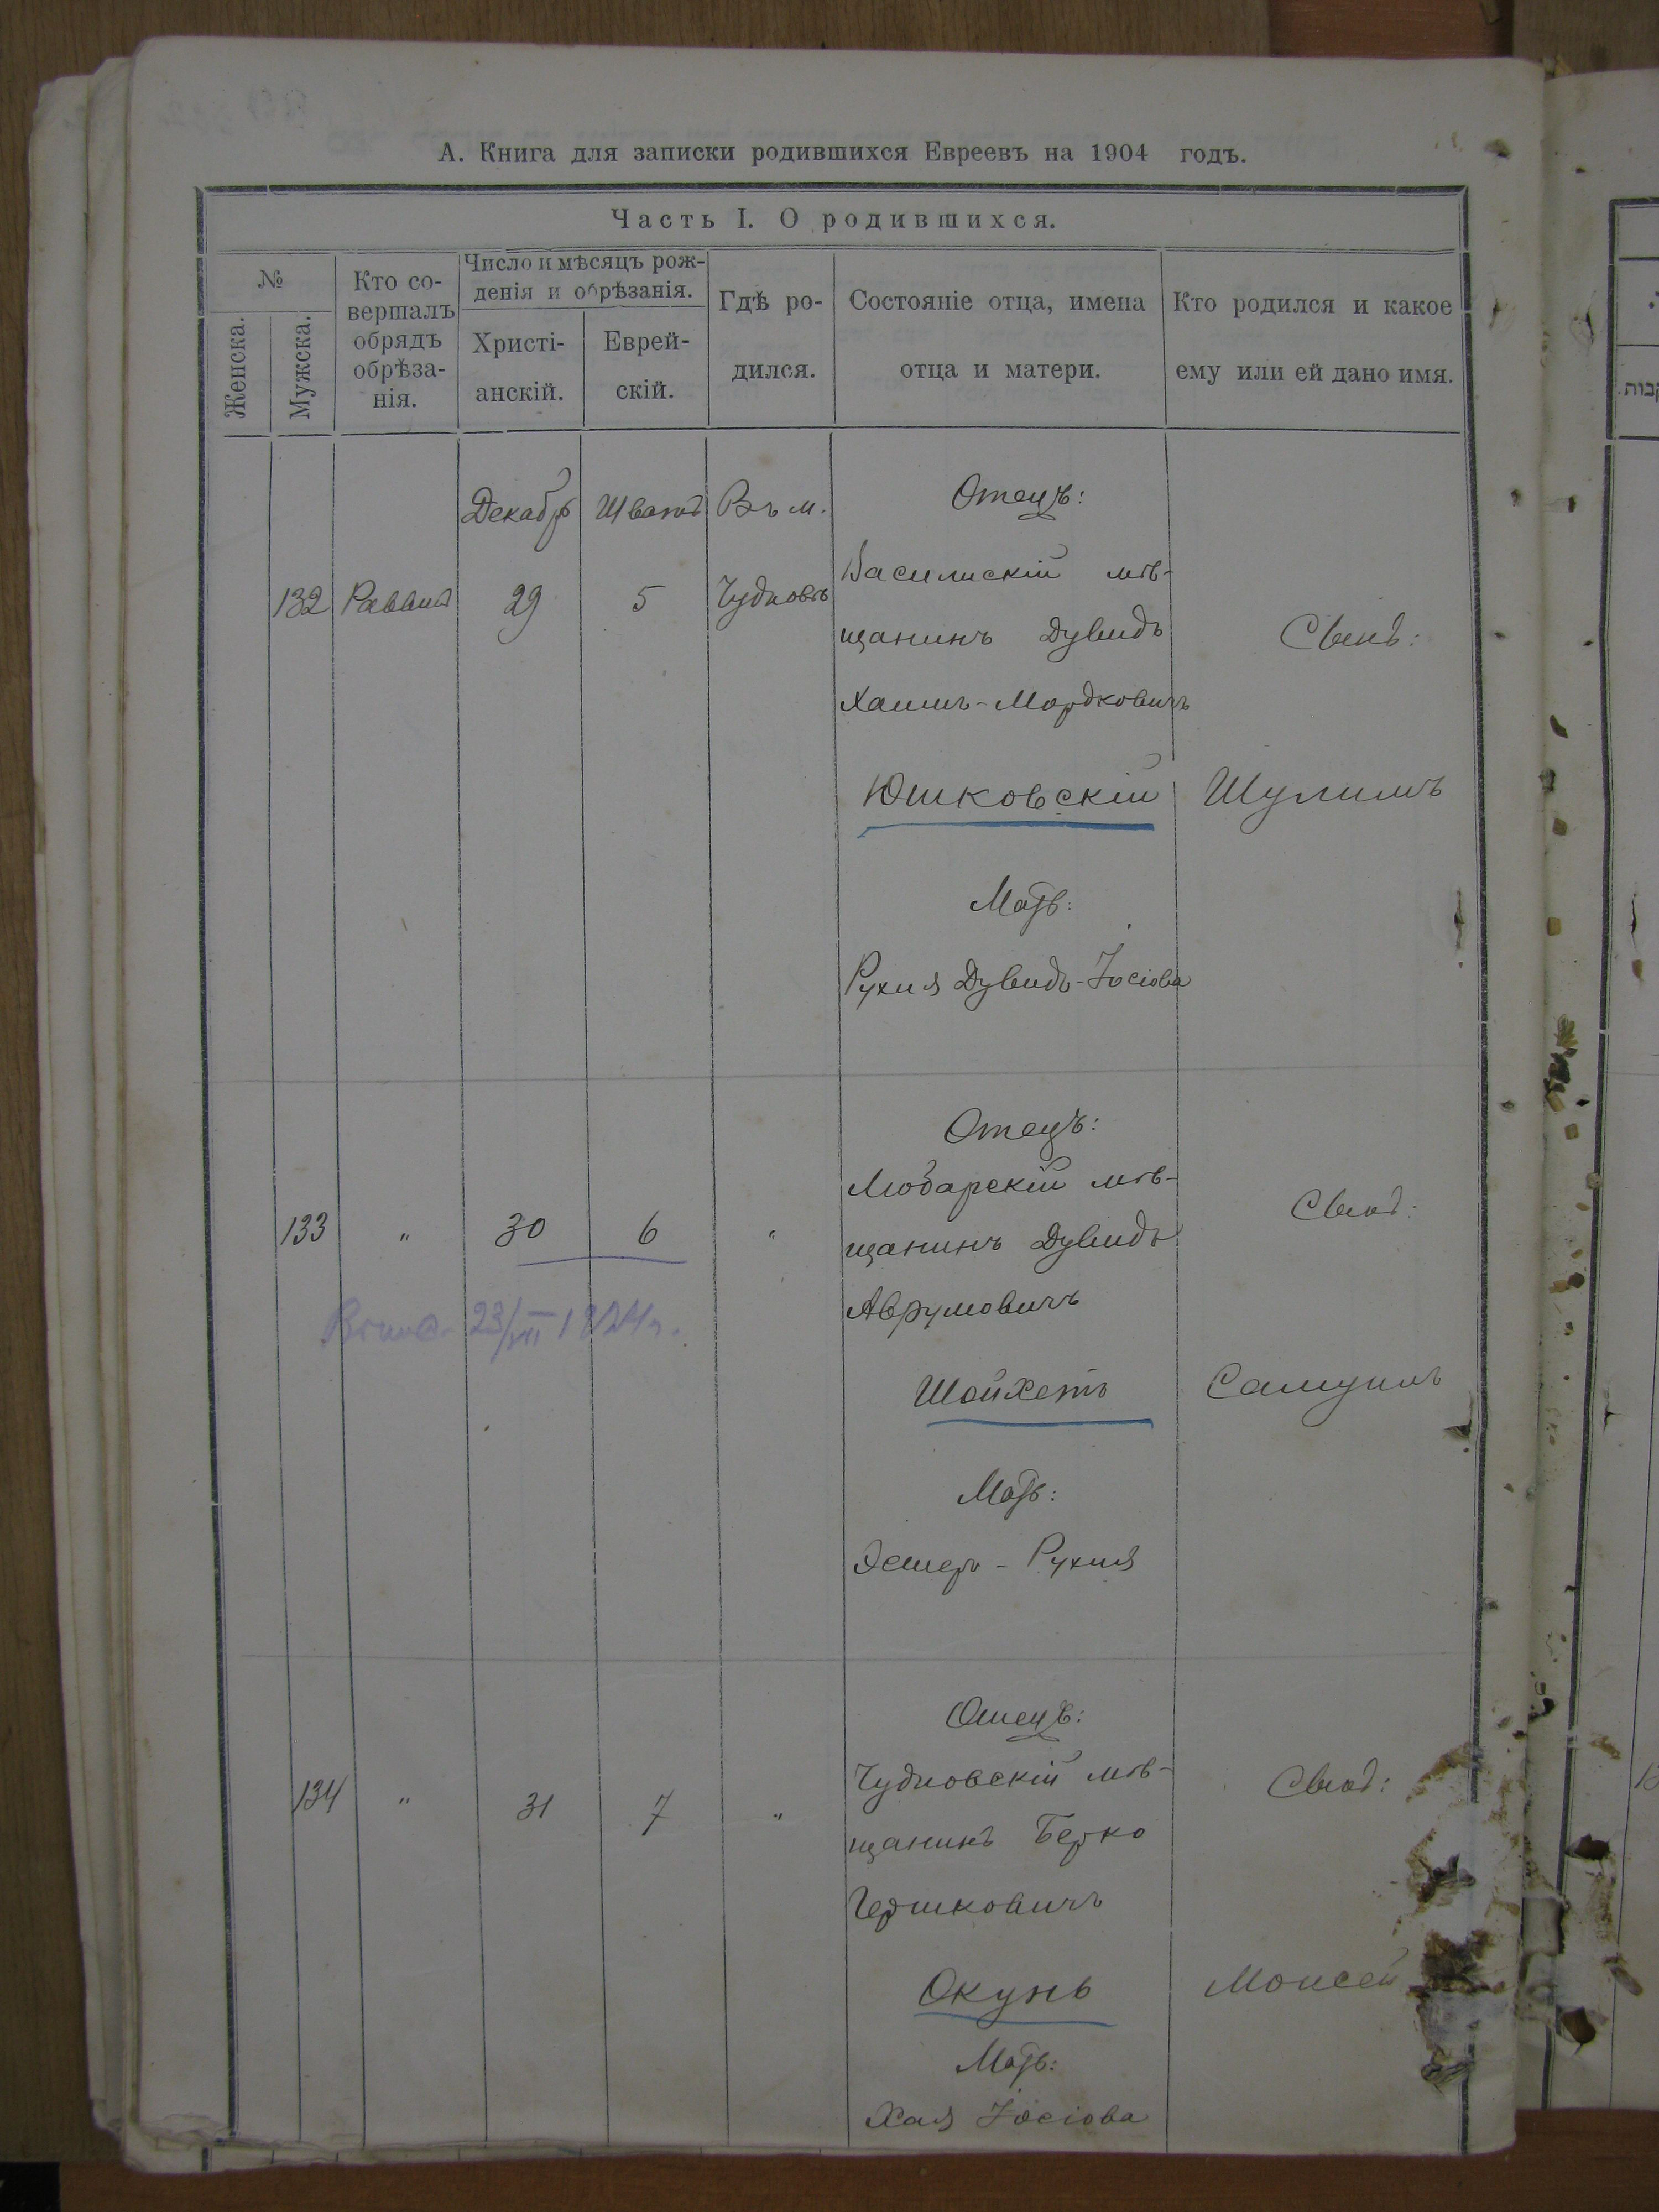 А. Книга для записки родившихся Евреевъ на 1904 годъ.
Часть I. О родившихся.
№
Женска.
Мужска.
Кто со-
вершалъ
обрядъ
обрѣза-
нія.
Число и мѣсяцъ рож-
денія и обрѣзанія.
Христі-
анскій.
Еврей-
скій.
Гдѣ ро-
дился.
Состояніе отца, имена
отца и матери.
Кто родился и какое
ему или ей дано имя.
132
Раввинъ
Декабрь
29
Шватъ
5
Въ м.
Чудновѣ
Отецъ:
Василискій мѣ-
щанинъ Дувидъ
Хаимъ-Мордковичъ
Юшковскій
Мать:
Рухля Дувидъ-Іосіова
Сынъ:
Шулимъ
133
"
30
6
"
23/VII 1924г.
Отецъ:
Любарскій мѣ-
щанинъ Дувидъ
Аврумовичъ
Шойхетъ
Мать:
Эстеръ - Рухля
Сынъ:
Самуилъ
134
"
31
7
"
Отецъ:
Чудновскій мѣ-
щанинъ Берко
Гершковичъ
Окунь
Мать:
Хая Іосіова
Сынъ:
Моисей
קבות